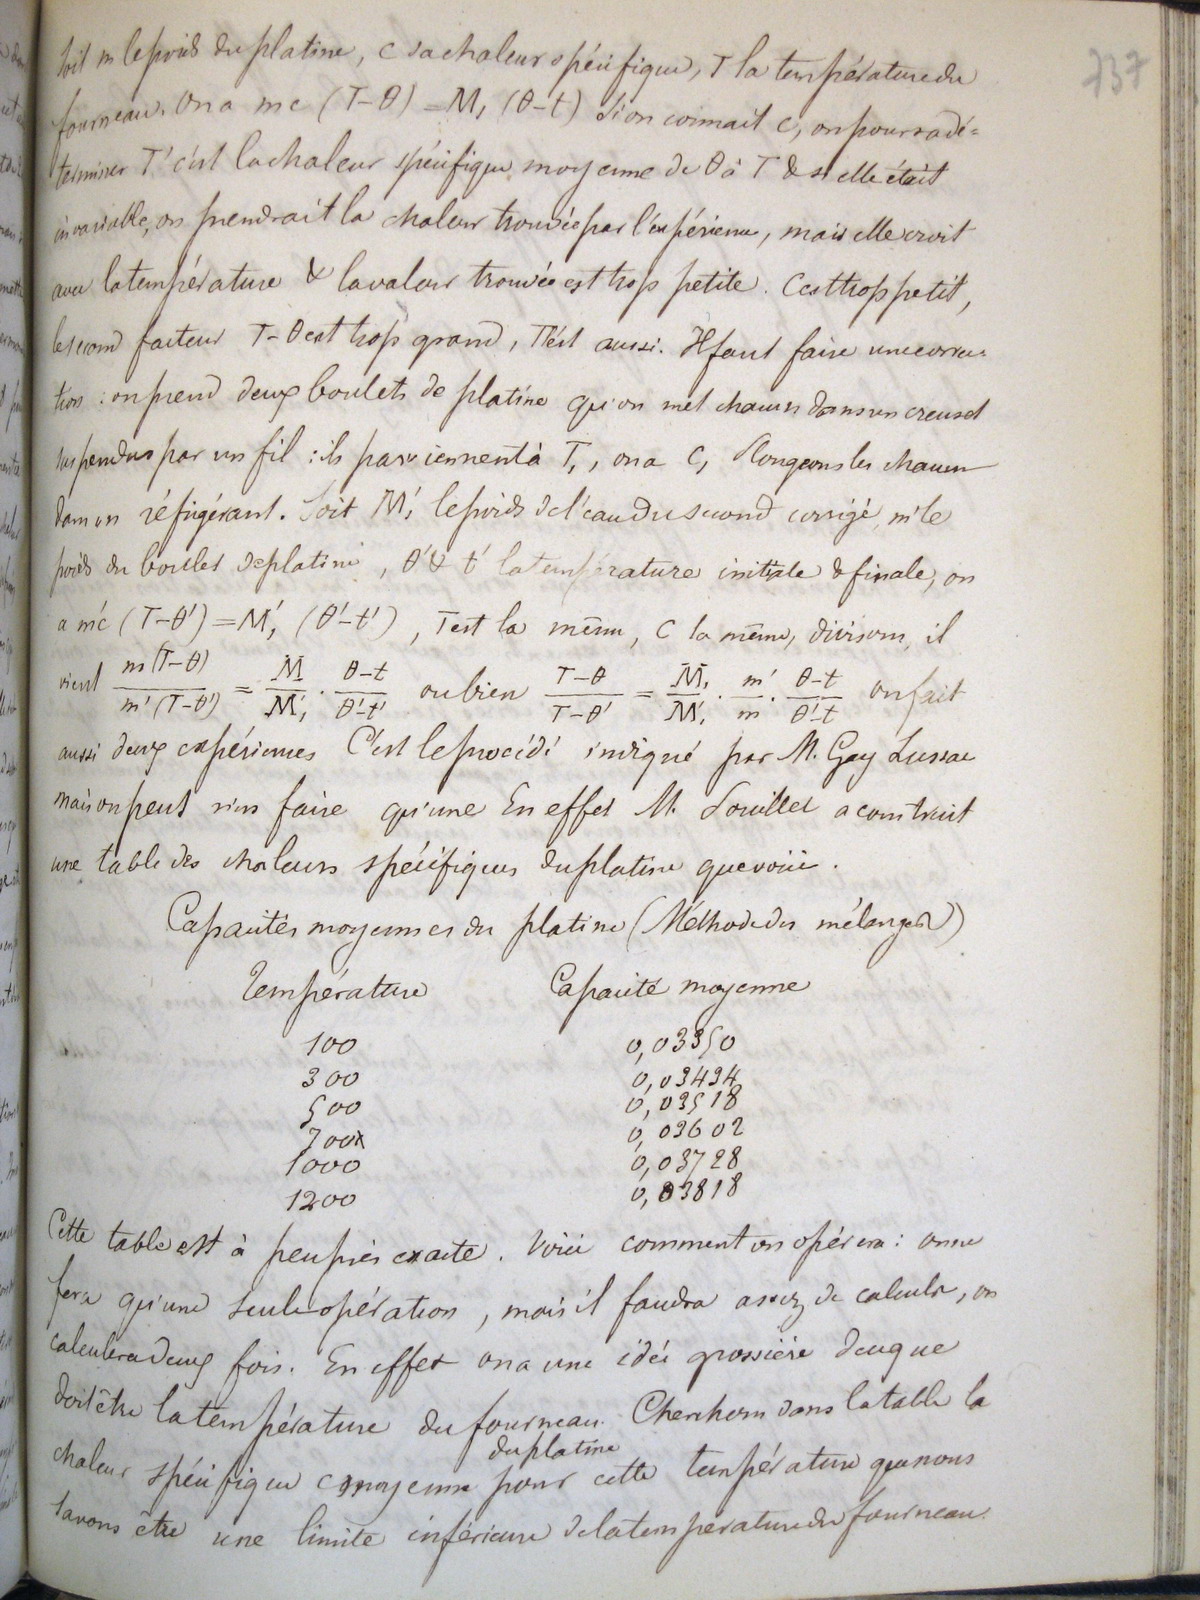 737
Soit m le poids du platine, c sa chaleur spécifique, T la température du
fourneau. On a mc (T-θ) = M, (θ-t) Si on connait c, on pourra dé-
terminer T c'est la chaleur spécifique moyenne de θ à T & si elle était
invariable, on prendrait la chaleur trouvée par l'expérience, mais elle croit
avec la température & la valeur trouvée est trop petite. C est trop petit,
le second facteur T-θ est trop grand, T l'est aussi. Il faut faire une correc-
tion : on prend deux boulets de platine qu'on met chacun dans un creuset
suspendus par un fil : ils parviennent à T,, on a C, Plongeons les chacun
dans un réfrigérant. Soit M', le poids de l'eau du second corrigé, m' le
poids du boulet de platine, θ' & t' la température initiale & finale, on
a m'c (T-θ') = M', (θ'-t'), T est la même, C la même, divisons, il
vient m(T-θ)/m'(T-θ') = M/M', . θ-t/θ'-t' ou bien T-θ/T-θ' = M,/M', . m'/m . θ-t/θ'-t on fait
aussi deux expériences C'est le procédé indiqué par M. Gay Lussac
mais on peut n'en faire qu'une En effet M. Pouillet a construit
une table des chaleurs spécifiques du platine que voici.
Capacités moyennes du platine (Méthode des mélanges)
Température Capacité moyenne
100 0,03350
300 0,03434
500 0,03518
700 0,03602
1000 0,03728
1200 0,03818
Cette table est à peu près exacte. Voici comment on opérera : on ne
fera qu'une seule opération, mais il faudra assez de calculs, on
calculera deux fois. En effet on a une idée grossière de ce que
doit être la température du fourneau. Cherchons dans la table la
du platine
chaleur spécifique c moyenne pour cette température que nous
savons être une limite inférieure de la température du fourneau.